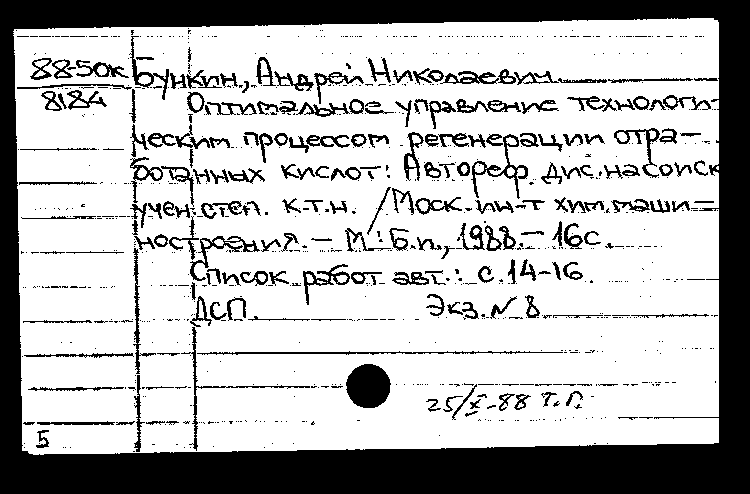 88-50к Бункин, Андрей Николаевич.
8184 Оптимальное управление технологи-
ческим процессом регенерации отра-
ботанных кислот: Автореф. дис. на соиск
учен. степ. к.т.н. / Моск. ин-т хим. маши-
ностроения. — М.: Б.и., 1988. — 16с.
Список работ авт.: с. 14-16.
ДСП. Экз. N 8
25/X-88 Т.П.
5